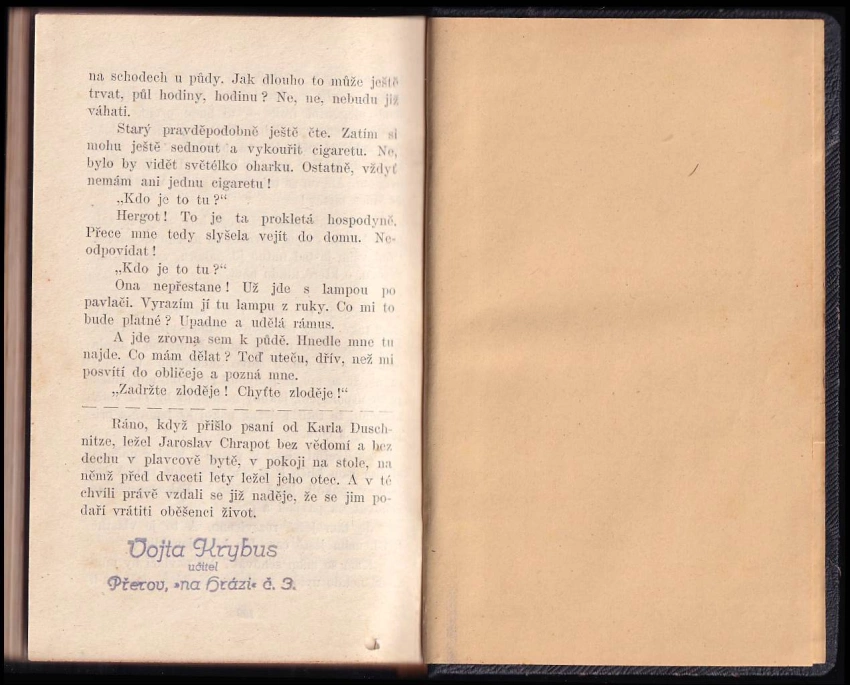 na schodech u půdy. Jak dlouho to může ještě
trvat, půl hodiny, hodinu? Ne, ne, nebudu již
váhati.
Starý pravděpodobně ještě čte. Zatím si
mohu ještě sednout a vykouřit cigaretu. Ne,
bylo by vidět světélko oharku. Ostatně, vždyť
nemám ani jednu cigaretu!
„Kdo je to tu?“
Hergot! To je ta prokletá hospodyně.
Přece mne tedy slyšela vejít do domu. Ne-
odpovídat!
„Kdo je to tu?“
Ona nepřestane! Už jde s lampou po
pavlači. Vyrazím jí tu lampu z ruky. Co mi to
bude platné? Upadne a udělá rámus.
A jde zrovna sem k půdě. Hnedle mne tu
najde. Co mám dělat? Teď uteču, dřív, než mi
posvítí do obličeje a pozná mne.
„Zadržte zloděje! Chyťte zloděje!“
Ráno, když přišlo psaní od Karla Dusch-
nitze, ležel Jaroslav Chrapot bez vědomí a bez
dechu v plavcově bytě, v pokoji na stole, na
němž před dvaceti lety ležel jeho otec. A v té
chvíli právě vzdali se již naděje, že se jim po-
daří vrátiti oběšenci život.
Vojta Krybus
učitel
Přerov, »na hrázi« č. 3.